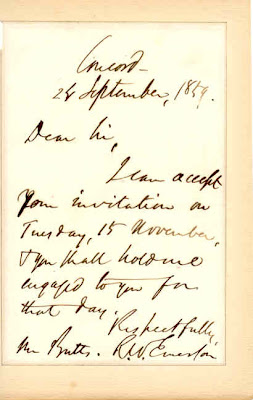 Concord
24 September, 1859.
Dear Sir,
I can accept
your invitation on
Tuesday, 15 November,
& you shall hold me
engaged to you for
that day.
Respectfully,
Mr Butts. R. W. Emerson